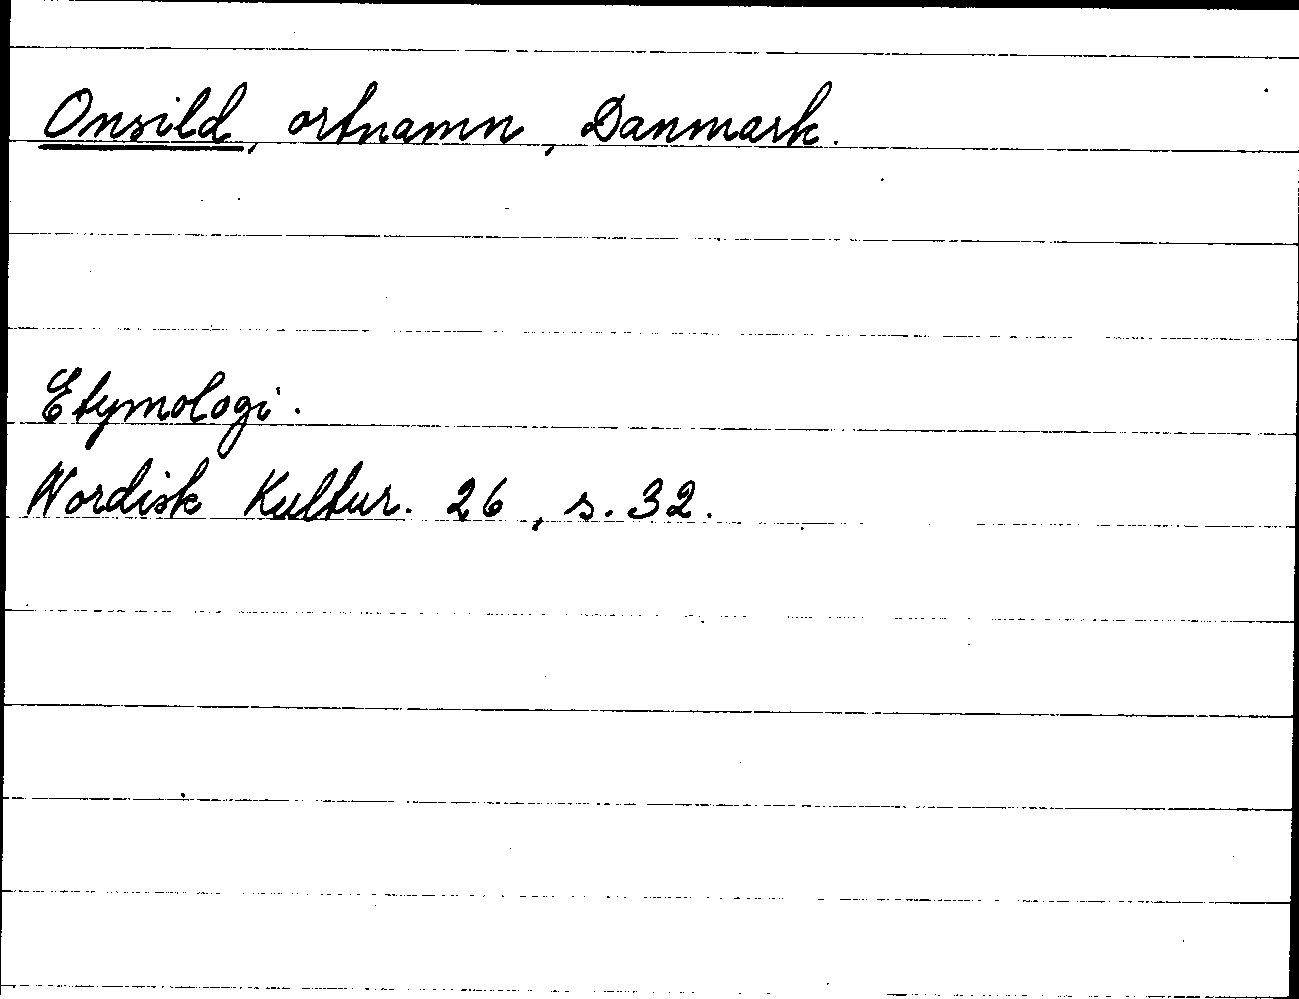 Onsild, ortnamn, Danmark.
Etymologi.
Nordisk Kultur. 26, s. 32.